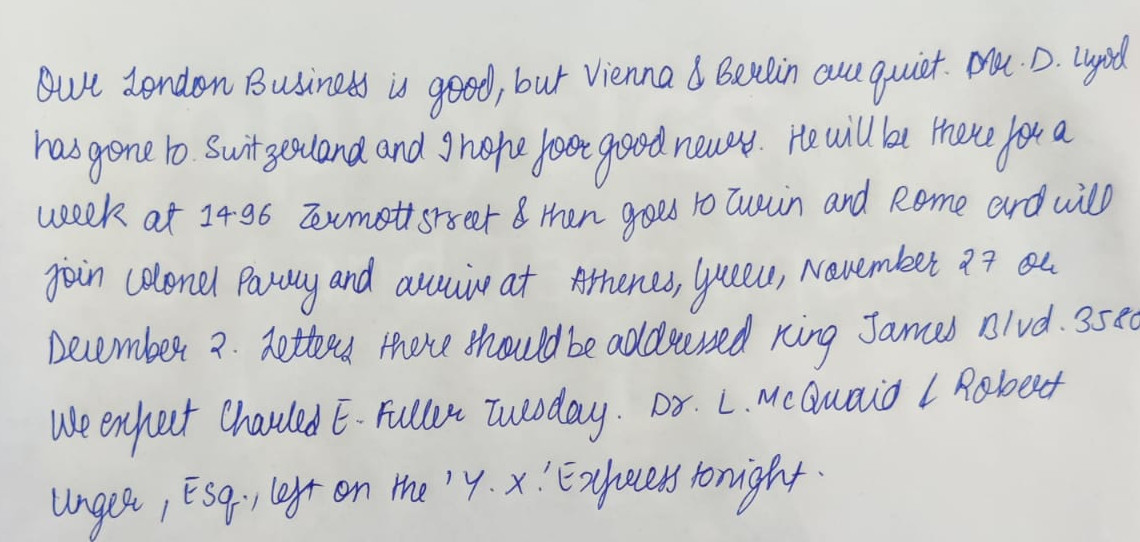 Our London Business is good, but Vienna & Berlin are quiet. Mr. D. Lyod
has gone to Switzerland and I hope foor good news. He will be there for a
week at 1496 Zermott street & then goes to Turin and Rome and will
join Colonel Parry and arrive at Athenes, Greece, November 27 or
December 2. Letters there should be addressed King James Blvd. 3580
We expect Charles E. Fuller Tuesday. Dr. L. McQuaid & Robert
Unger, Esq., left on the 'Y. X.' Express tonight.